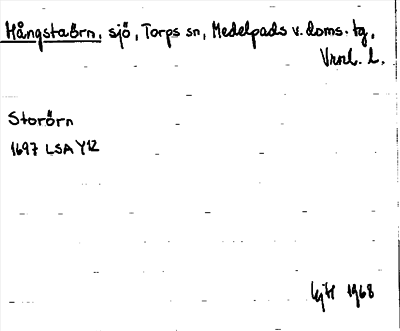 Hångstaörn, sjö, Torps sn, Medelpads v. doms. tg,
Vrnl. l.
Storörn
1697 LSA Y12
1968